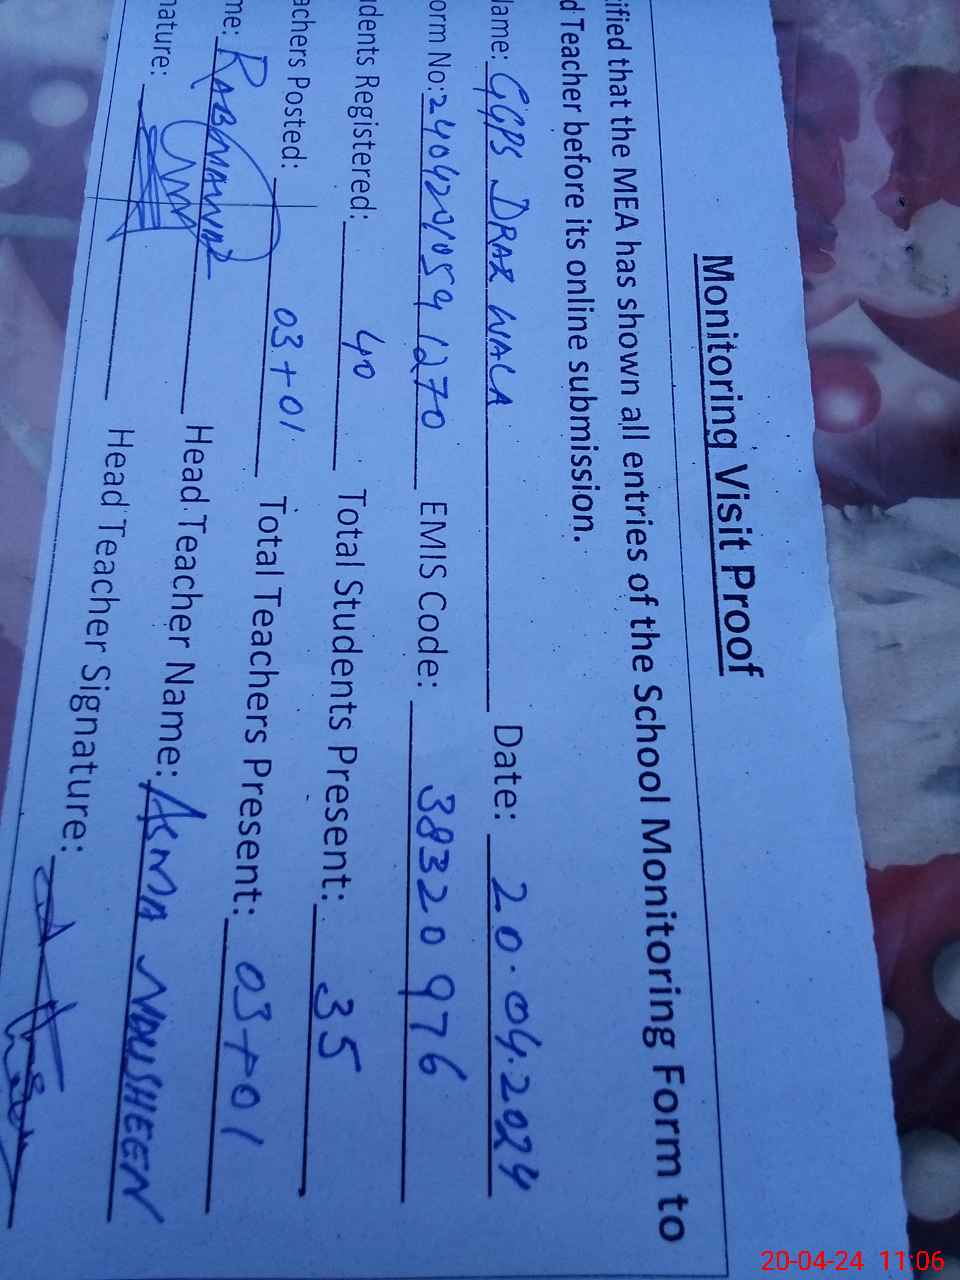 Monitoring Visit Proof
ified that the MEA has shown all entries of the School Monitoring Form to
d Teacher before its online submission.
lame: GGPS DRAR WALA Date: 20.04.2024
orm No: EMIS Code: 38320976
dents Registered: 40 Total Students Present: 35
achers Posted: 03+01 Total Teachers Present: 03+01
me: Head Teacher Name: ASMA NOUSHEEN
nature: Head Teacher Signature:
20-04-24 11:06